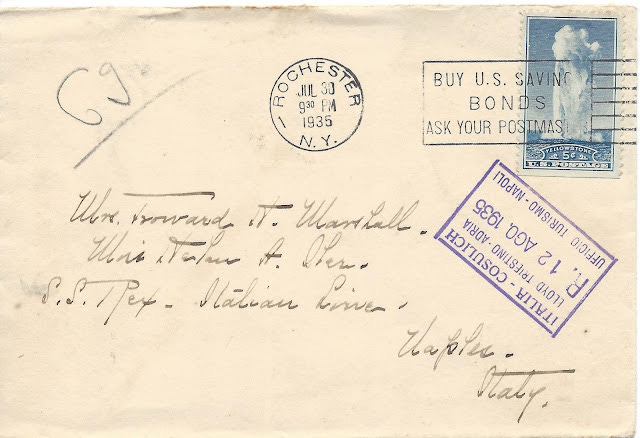 69
ROCHESTER
JUL 30
9 30 PM
1935
N.Y.
BUY U.S. SAVIN
BONDS
ASK YOUR POSTMAS
YELLOWSTONE
5¢
U.S. POSTAGE
ITALIA - COSULICH
LLOYD TRIESTINO - ADRIA
R. 12 AGO. 1935
UFFICIO TURISMO - NAPOLI
Mrs. Howard H. Marshall.
A.
S.S. Rex - Italian Line.
Naples.
Italy.